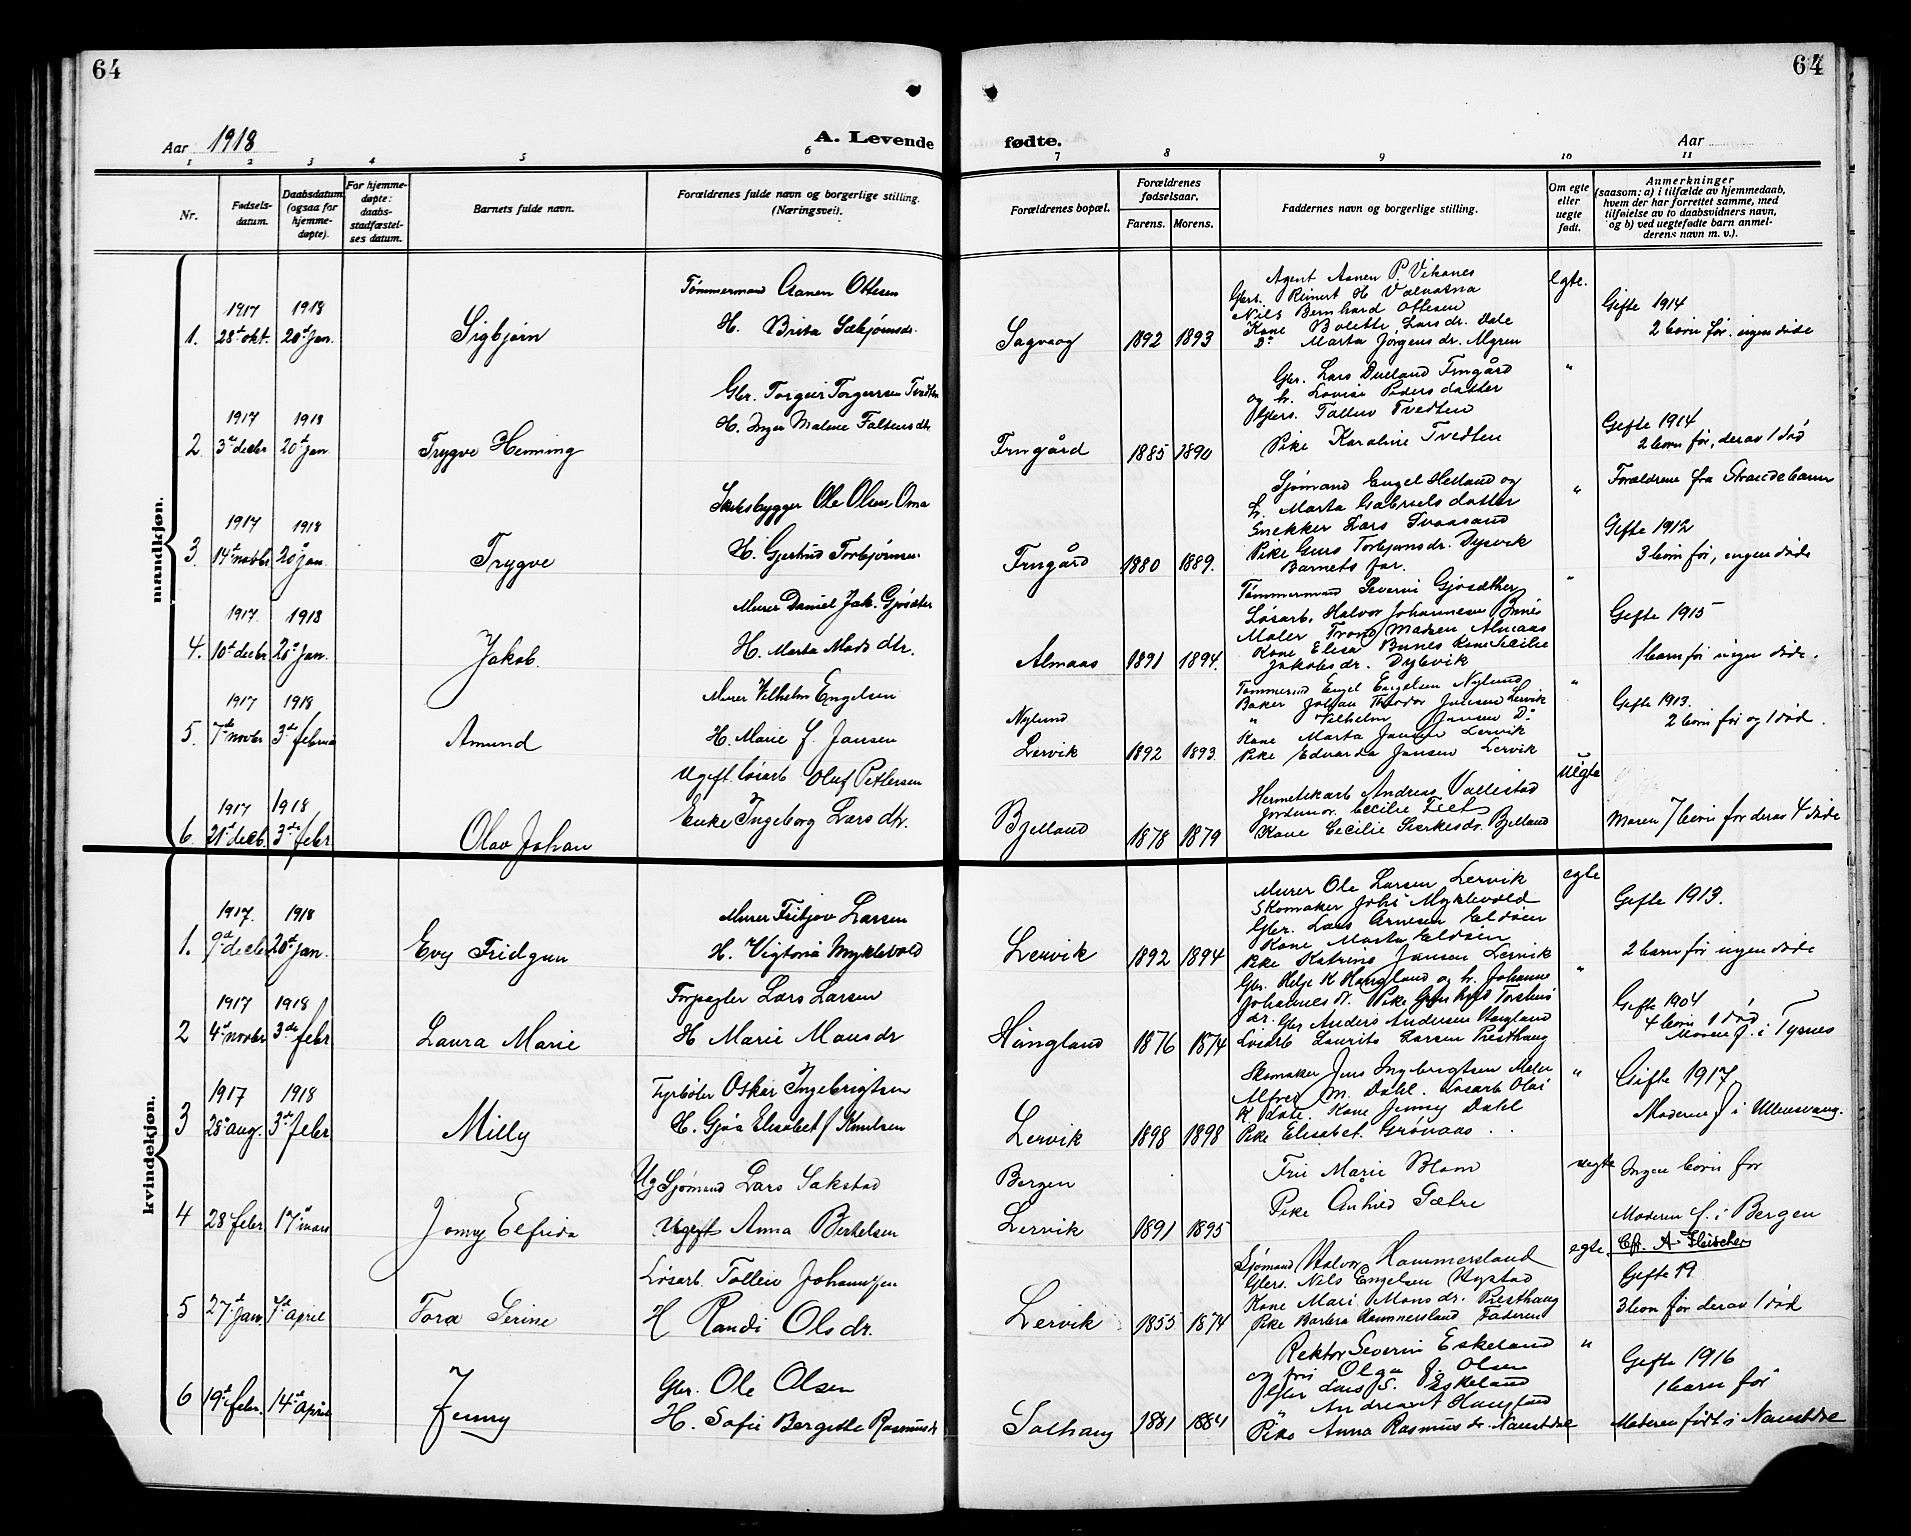 64
64
Aar 1918
A. Levende
fødte.
Aar
1 2 3 4 5 6 7 8 9 10 11
Nr.
Fødsels-
datum.
Daabsdatum
(ogsaa for
hjemme-
døpte).
For hjemme-
døpte:
daabs-
stadfæstel-
ses datum.
Barnets fulde navn.
Forældrenes fulde navn og borgerlige stilling.
(Næringsvei).
Forældrenes bopæl.
Forældrenes
fødselsaar.
Farens. Morens.
Faddernes navn og borgerlige stilling.
Om egte
eller
uegte
født.
Anmerkninger
(saasom: a) i tilfælde av hjemmedaab,
hvem der har forrettet samme, med
tilføielse av to daabsvidners navn,
og b) ved uegtefødte barn anmel-
derens navn m. v.).
mandkjøn.
1. 1917 28de okt. 1918 20de jan. Sigbjørn
Tømmermand Aanen Ottesen
H. Brita Sæbjørnsdr.
Sagvaag 1892 1893
Agent Aanen P. Vihanes
Gbrs. Reinert H Valvatna
Nils Bernhard Ottesen
Kone Bolette Larsdr. Dale
Do Marta Jørgensdr. Algren
egte.
Gifte 1914
2 born før. ingen døde
2 1917 3de decbr 1918 20de jan Trygve Henning
Gbr. Torgeir Torgersen Tvedten
H. Inger Malene Faltensdtr.
Frugård 1885 1890
Gbr. Lars Dueland Frugård
og h. Lovise Pedersdatter
Gbrs. Tallev Tvedten
Pike Karoline Tvedten
"
Gifte 1914
2 born før, derav 1 død
Forældrene fra Strandebarm
3. 1917 14de novbr 1918 20de jan. Trygve
Skibsbygger Ole Olsen Oma
H. Gjertrud Torbjørnsen
Frugård 1880 1889.
Sjømand Engel Helland og
h. Marta Gabrielsdatter
Snekker Lars Tvaasand
Pike Guro Torbjørnsdr. Dysvik
Barnets far.
"
Gifte 1912
3 born før, ingen døde
4. 1917. 10de decbr 1918 20de jan. Jakob.
Murer Daniel Jak. Gjøsæter
H. Marta Mads dtr.
Almaas 1891 1894.
Tømmermand Severin Gjøsæther
Løsarb. Halvor Johannesen Bnnes
Maler Trond Madsen Almaas
Kone Elisa Bnnes Kone Cecilie
Jakobsdr. Dybvik
"
Gifte 1915
1 barn før ingen døde.
5. 1917 7de novbr 1918 3de februar Amund
Murer Vilhelm Engelsen
H. Marie f. Jansen
Nylund
Lervik 1892 1893.
Tømmermd Engel Engelsen Nylund
Baker Johan Theodor Jansen Lervik
" Vilhelm Jansen Do
Kone Marta Jansen Lervik
Pike Edvarda Jansen Lervik
"
Gifte 1913.
2 born før og 1 død.
6. 1917 21de decb. 1918 3de febr. Olav Johan
Ugift løsarb Oluf Pettersen
Enke Ingeborg Larsdtr.
Bjelland 1878 1879
Hermetikarb Andreas Vallestad
Jordemor Cecilie Teet
Kone Cecilie Sjerkesdr. Bjelland
uegte
Moren 7 born før derav 4 døde
kvindekjøn.
1. 1917. 9de decbr 1918 20de jan. Evy Fridgun
Murer Fritjov Larsen
H. Vigtoria Myklevold
Lervik 1892 1894
Murer Ole Larsen Lervik
Skomaker Johs Myklevold
Gbr. Lars Arnesen Eldøen
Kone Marta Eldøen
Pike Katrine Jansen Lervik
egte
Gifte 1913.
2 barn før ingen døde
2 1917 4de novbr 1918 3de febr Laura Marie
Forpagter Lars Larsen
H Marie Mansdr
Hångland 1876 1874
Gbr. Helje K Hangland og h. Johanne
Johannesdr. Pike Gunhild Torstens
dr. Gbr Anders Andersen Haugland
Løsarb Laurits Larsen Presthaug
"
Gifte 1904
4 born 1 død
Moren f. i Tysnes
3 1917 28de aug. 1918 3de febr Milly
Fyrbøter Oskar Ingebrigtsen
H. Gjøa Elisabet f Knutsen
Lervik 1898 1898
Skomaker Jens Ingebrigtsen Maler
Alfred M. Dahl. Løsarb Olai
K Dale. Kone Jenny Dahl
Pike Elisabet Grønaas
"
Gifte 1917
Moderen f i Ullensvang.
4 28 febr 17de mars Jonny Elfrida
Ug Sjømand Lars Sakstad
Ugift Anna Bertelsen
Bergen
Lervik 1891 1895
Frü Marie Blom
Pike Anhild Sætre
uegte
Ingen born før
Moderen f. i Bergen
Eft. A Fleischer
5 27de jan. 7de april Tora Serine
Løsarb. Tollev Johannesen
H Randi Olsdr.
Lervik 1855 1874
Sjømand Halvor Hammersland
Gbrs. Nils Engelsen Hystad
Kone Mari Monsdr. Presthaug
Pike Barbra Hammersland Faderen
egte.
Gifte 19
3 born før derav 1 død
6 19de febr. 14de april Jenny
Gbr. Ole Olsen
H. Sofie Bergitte Rasmusdr
Solhaug 1881 1884
Rektor Severin Eskeland
og frü Olga J. Olsen
Gbr Lars S. Eskeland
" Andreas A Haugland
Pike Anna Rasmusdr. Naustdal
"
Gifte 1916
1 barn før
Moderen født i Naustdal